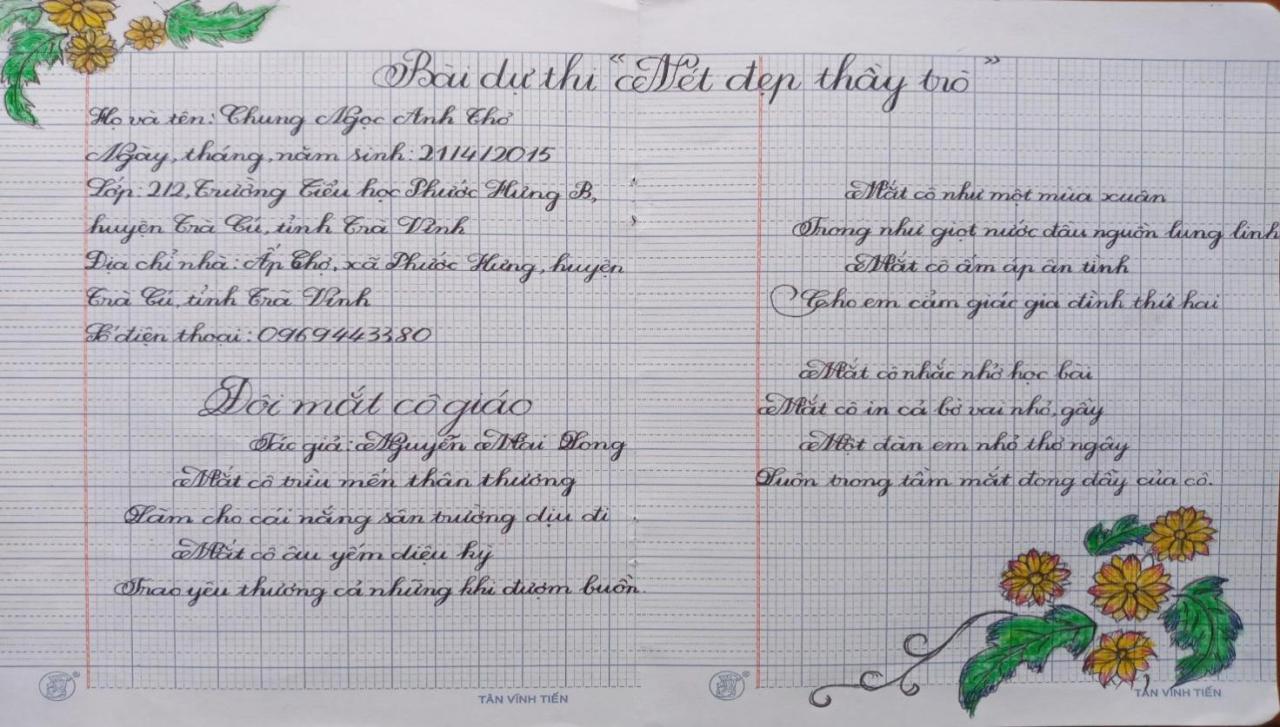 Bài dự thi "Nét đẹp thầy trò"
Họ và tên: Chung Ngọc Anh Thơ
Ngày, tháng, năm sinh: 21/4/2015
Lớp: 2/2, Trường Tiểu học Phước Hưng B,
huyện Trà Cú, tỉnh Trà Vinh
Địa chỉ nhà: Ấp Chợ, xã Phước Hưng, huyện
Trà Cú, tỉnh Trà Vinh
Số điện thoại: 0969443380
Đôi mắt cô giáo
Tác giả: Nguyễn Mai Long
Mắt cô trìu mến thân thương
Làm cho cái nắng sân trường dịu đi
Mắt cô âu yếm diệu kỳ
Trao yêu thương cả những khi đượm buồn.
Mắt cô như một mùa xuân
Trong như giọt nước đầu nguồn lung linh
Mắt cô ấm áp ân tình
Cho em cảm giác gia đình thứ hai
Mắt cô nhắc nhở học bài
Mắt cô in cả bờ vai nhỏ, gầy
Một đàn em nhỏ thơ ngây
Luôn trong tầm mắt đong đầy của cô.
TÂN VĨNH TIẾN
TÂN VĨNH TIẾN